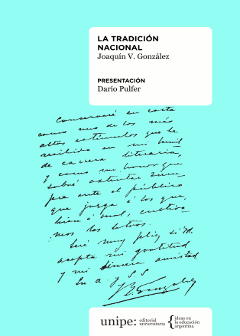 LA TRADICIÓN
NACIONAL
Joaquín V. González
PRESENTACIÓN
Darío Pulfer
Conservaré en carta
como uno de los más
altos estímulos que he
recibido en mi
de carrera literaria,
I como un honor que
sobre
para ante el público
que juzga á los que,
bien ó mal, cultiva-
mos las letras.
muy feliz si Ud.
acepta mi gratitud
I mi sincera amistad
J V González
unipe: editorial
universitaria
ideas en
la educación
argentina